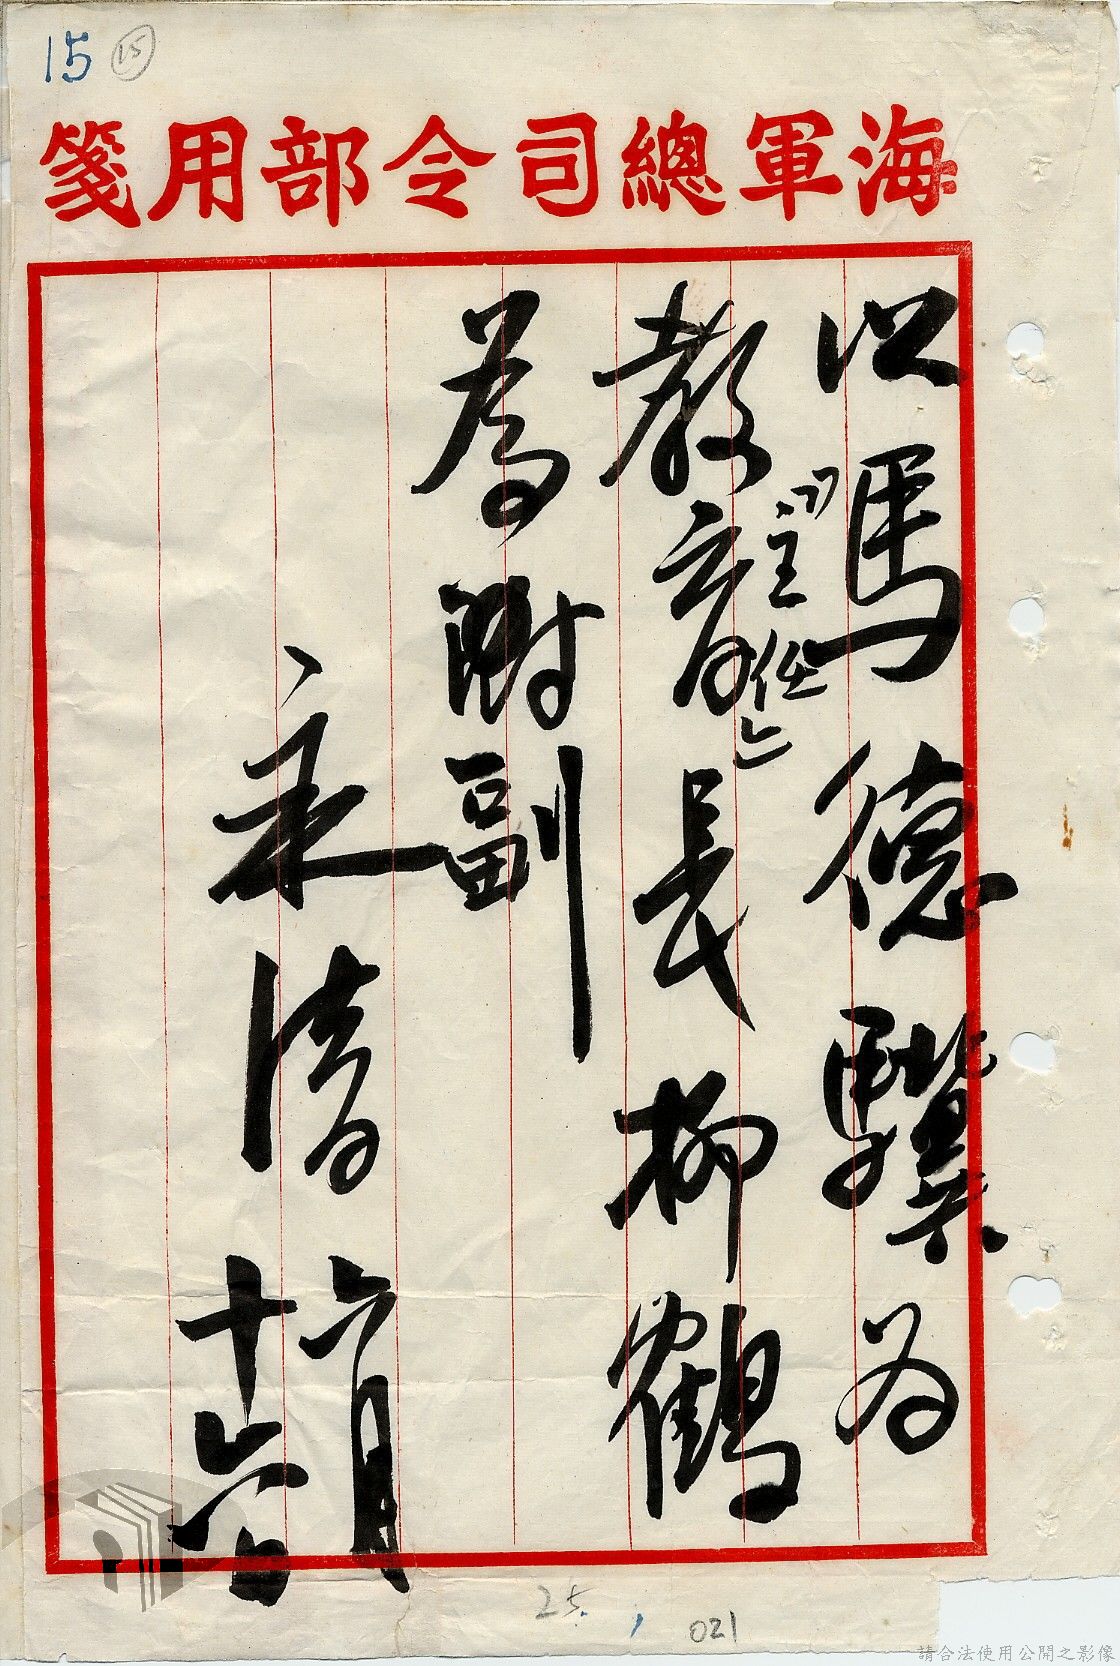 15 15
海軍總司令部用箋
以馬德驥為
(主任)
教育長柳鶴
為副
永清 六月
十六日
25
021
請合法使用公開之影像